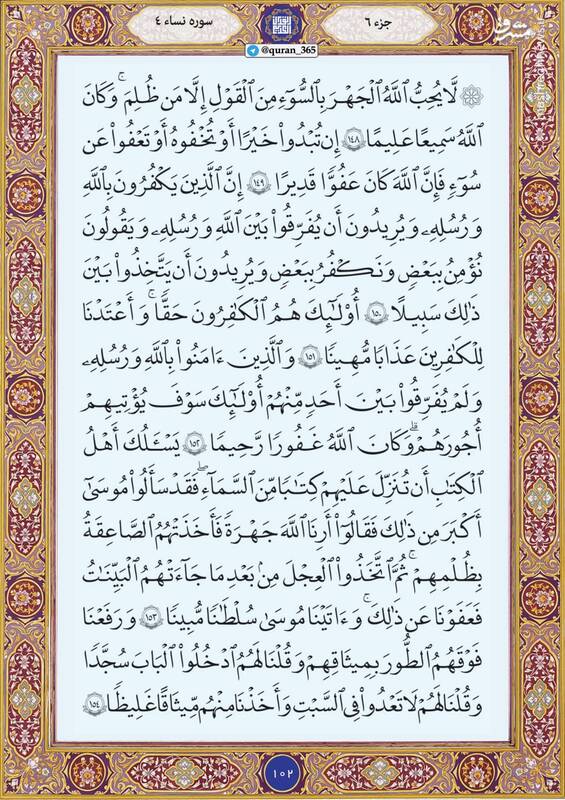 جزء ۶
سوره نساء ۴
@quran_365
مشرق
۞ لَّا يُحِبُّ ٱللَّهُ ٱلْجَهْرَ بِٱلسُّوٓءِ مِنَ ٱلْقَوْلِ إِلَّا مَن ظُلِمَ ۚ وَكَانَ
ٱللَّهُ سَمِيعًا عَلِيمًا ۝١٤٨ إِن تُبْدُوا۟ خَيْرًا أَوْ تُخْفُوهُ أَوْ تَعْفُوا۟ عَن
سُوٓءٍ فَإِنَّ ٱللَّهَ كَانَ عَفُوًّا قَدِيرًا ۝١٤٩ إِنَّ ٱلَّذِينَ يَكْفُرُونَ بِٱللَّهِ
وَرُسُلِهِۦ وَيُرِيدُونَ أَن يُفَرِّقُوا۟ بَيْنَ ٱللَّهِ وَرُسُلِهِۦ وَيَقُولُونَ
نُؤْمِنُ بِبَعْضٍ وَنَكْفُرُ بِبَعْضٍ وَيُرِيدُونَ أَن يَتَّخِذُوا۟ بَيْنَ
ذَٰلِكَ سَبِيلًا ۝١٥٠ أُو۟لَٰٓئِكَ هُمُ ٱلْكَٰفِرُونَ حَقًّا ۚ وَأَعْتَدْنَا
لِلْكَٰفِرِينَ عَذَابًا مُّهِينًا ۝١٥١ وَٱلَّذِينَ ءَامَنُوا۟ بِٱللَّهِ وَرُسُلِهِۦ
وَلَمْ يُفَرِّقُوا۟ بَيْنَ أَحَدٍ مِّنْهُمْ أُو۟لَٰٓئِكَ سَوْفَ يُؤْتِيهِمْ
أُجُورَهُمْ ۗ وَكَانَ ٱللَّهُ غَفُورًا رَّحِيمًا ۝١٥٢ يَسْـَٔلُكَ أَهْلُ
ٱلْكِتَٰبِ أَن تُنَزِّلَ عَلَيْهِمْ كِتَٰبًا مِّنَ ٱلسَّمَآءِ ۚ فَقَدْ سَأَلُوا۟ مُوسَىٰٓ
أَكْبَرَ مِن ذَٰلِكَ فَقَالُوٓا۟ أَرِنَا ٱللَّهَ جَهْرَةً فَأَخَذَتْهُمُ ٱلصَّٰعِقَةُ
بِظُلْمِهِمْ ۚ ثُمَّ ٱتَّخَذُوا۟ ٱلْعِجْلَ مِنۢ بَعْدِ مَا جَآءَتْهُمُ ٱلْبَيِّنَٰتُ
فَعَفَوْنَا عَن ذَٰلِكَ ۚ وَءَاتَيْنَا مُوسَىٰ سُلْطَٰنًا مُّبِينًا ۝١٥٣ وَرَفَعْنَا
فَوْقَهُمُ ٱلطُّورَ بِمِيثَٰقِهِمْ وَقُلْنَا لَهُمُ ٱدْخُلُوا۟ ٱلْبَابَ سُجَّدًا
وَقُلْنَا لَهُمْ لَا تَعْدُوا۟ فِى ٱلسَّبْتِ وَأَخَذْنَا مِنْهُم مِّيثَٰقًا غَلِيظًا ۝١٥٤
۱۰۲